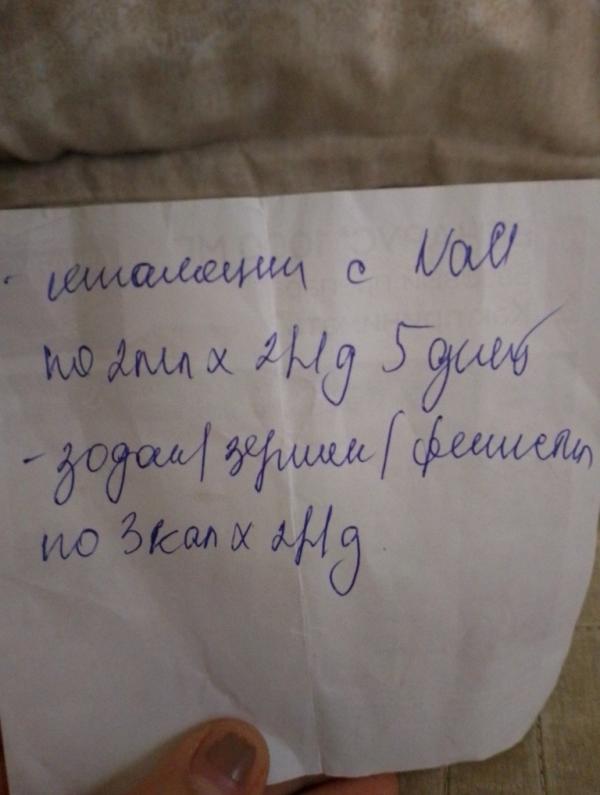 - ингаляции с NaCl
по 2мл х 2р/д 5 дней
- зодак/зертек/фенистил
по 3 кап х 2р/д